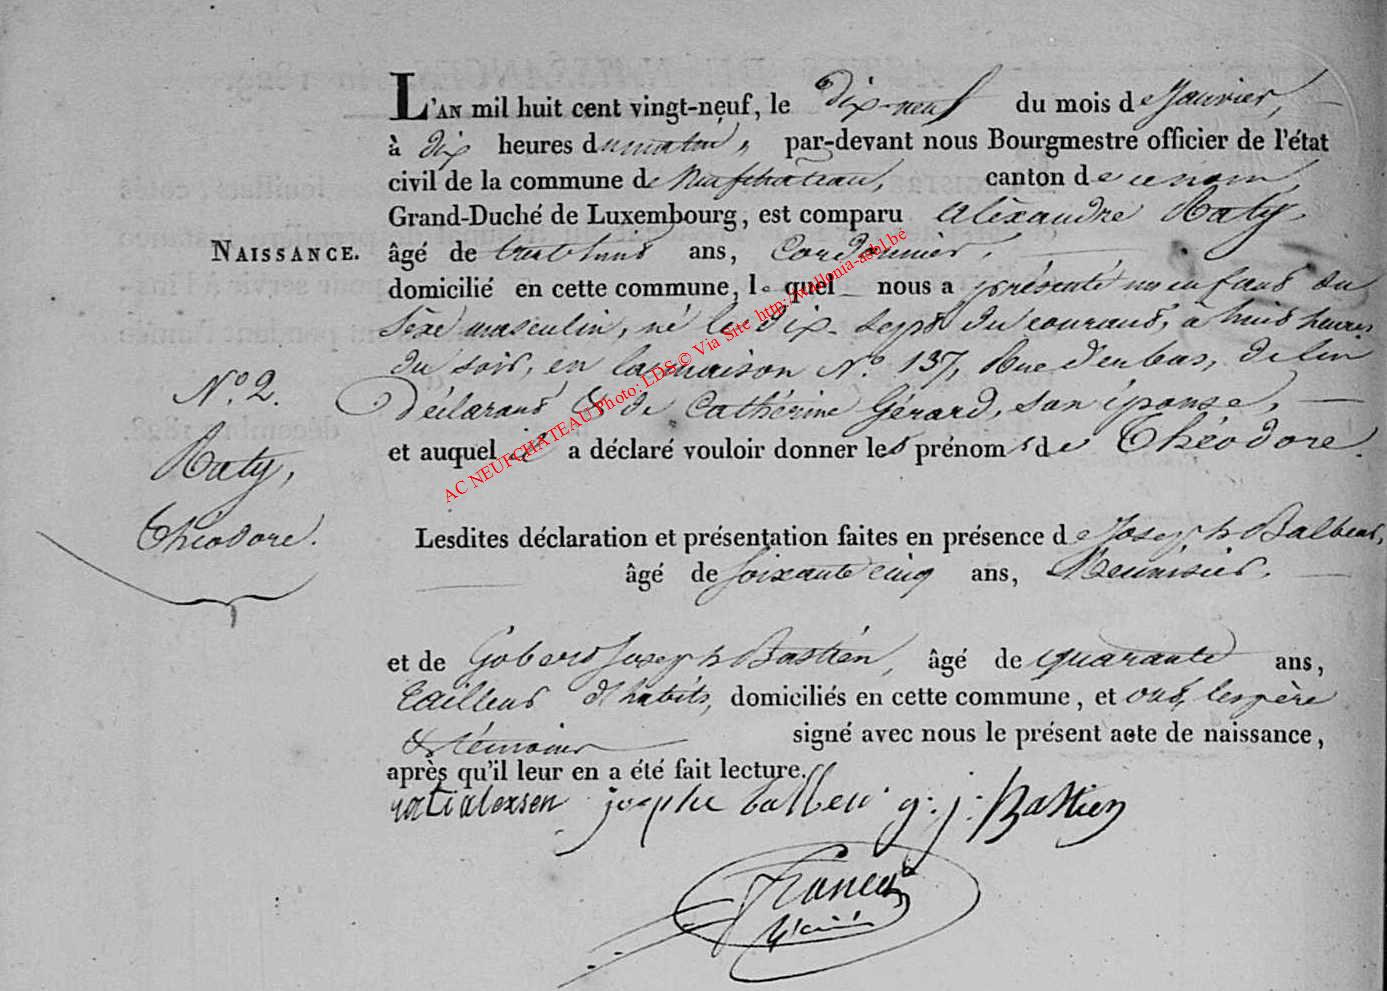 L'AN mil huit cent vingt-neuf, le dix-neuf du mois de Janvier,
à dix heures du matin, par-devant nous Bourgmestre officier de l'état
civil de la commune de Neufchateau, canton de ce nom,
Grand-Duché de Luxembourg, est comparu Aléxandre Raty,
NAISSANCE. âgé de ans, Cordonnier,
domicilié en cette commune, le quel nous a présenté un enfant du
Séxe masculin, né le dix-sept du courant, à huit heures
du soir, en la maison N.º 137, Rue d'en bas, de lui
N.º 2. Déclarant & de Cathérine Gérard, son épouse,
et auquel il a déclaré vouloir donner les prénoms de Théodore.
Raty,
Théodore.
Lesdites déclaration et présentation faites en présence de Joseph Balbeur,
âgé de soixante cinq ans, Meunisier,
et de Gobert Joseph Bastien, âgé de quarante ans,
tailleur d'habits, domiciliés en cette commune, et ont, les père
& témoins signé avec nous le présent acte de naissance,
après qu'il leur en a été fait lecture.
rati alexsen josephe balbeur g: j: Bastien
AC NEUFCHÂTEAU Photo: LDS © Via Site http://wallonia-asbl.be